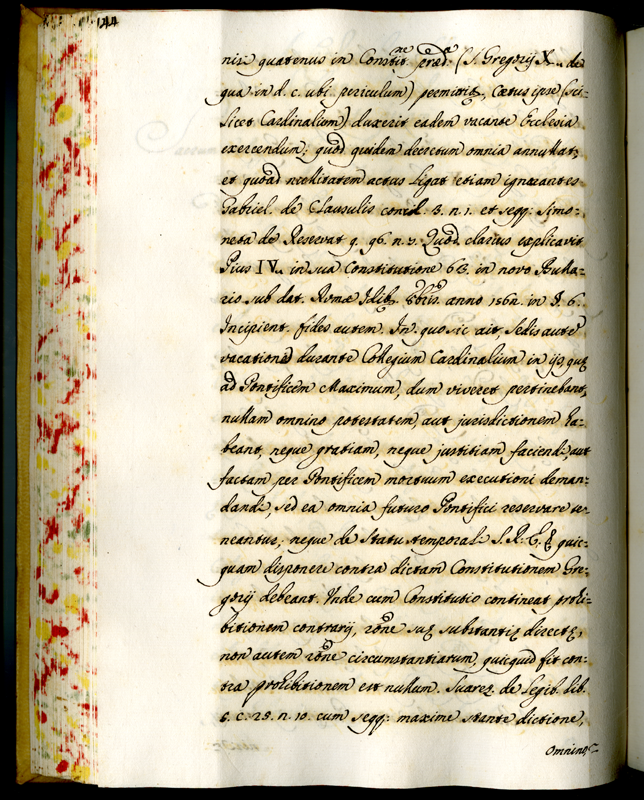 144
nisi quatenus in Constit.ne præd.a (S. Gregorij X. de
qua in d. c. ubi periculum) permittitur, Cœtus ipse (sci-
licet Cardinalium) duxerit eadem vacante Ecclesia
exercendum; quod quidem decretum omnia annullat,
et quoad nullitatem actus ligat etiam ignorantes
Gabriel. de Clausulis concl. 3. n. 1. et seqq: Simo-
neta de Reservat q. 96. n. 3. Quod clarius explicavit
Pius IV. in sua Constitutione 63. in novo Bulla-
rio sub dat. Romæ Idib. 8bris. anno 1562. in §. 6.
Incipient. fides autem. In quo sic ait Sedis autē
vacatione durante Collegium Cardinalium in ijs quę
ad Pontificem Maximum, dum viveret pertinebant,
nullam omnino potestatem, aut jurisdictionem ha-
beant, neque gratiam, neque justitiam faciendi, aut
factam per Pontificem mortuum executioni deman-
dandi, sed ea omnia futuro Pontifici reservare te-
neantur; neque de Statu temporali S. R. E. quic-
quam disponere contra dictam Constitutionem Gre-
gorij debeant. Inde cum Constitutio contineat prohi-
bitionem contrarij, rōne suę substantię directę,
non autem rōne circumstantiarum, quicquid fit con-
tra prohibitionem est nullum. Suarez. de Legib. lib.
5. c. 25. n. 10. cum seqq: maxime stante dictione,
Omnino,